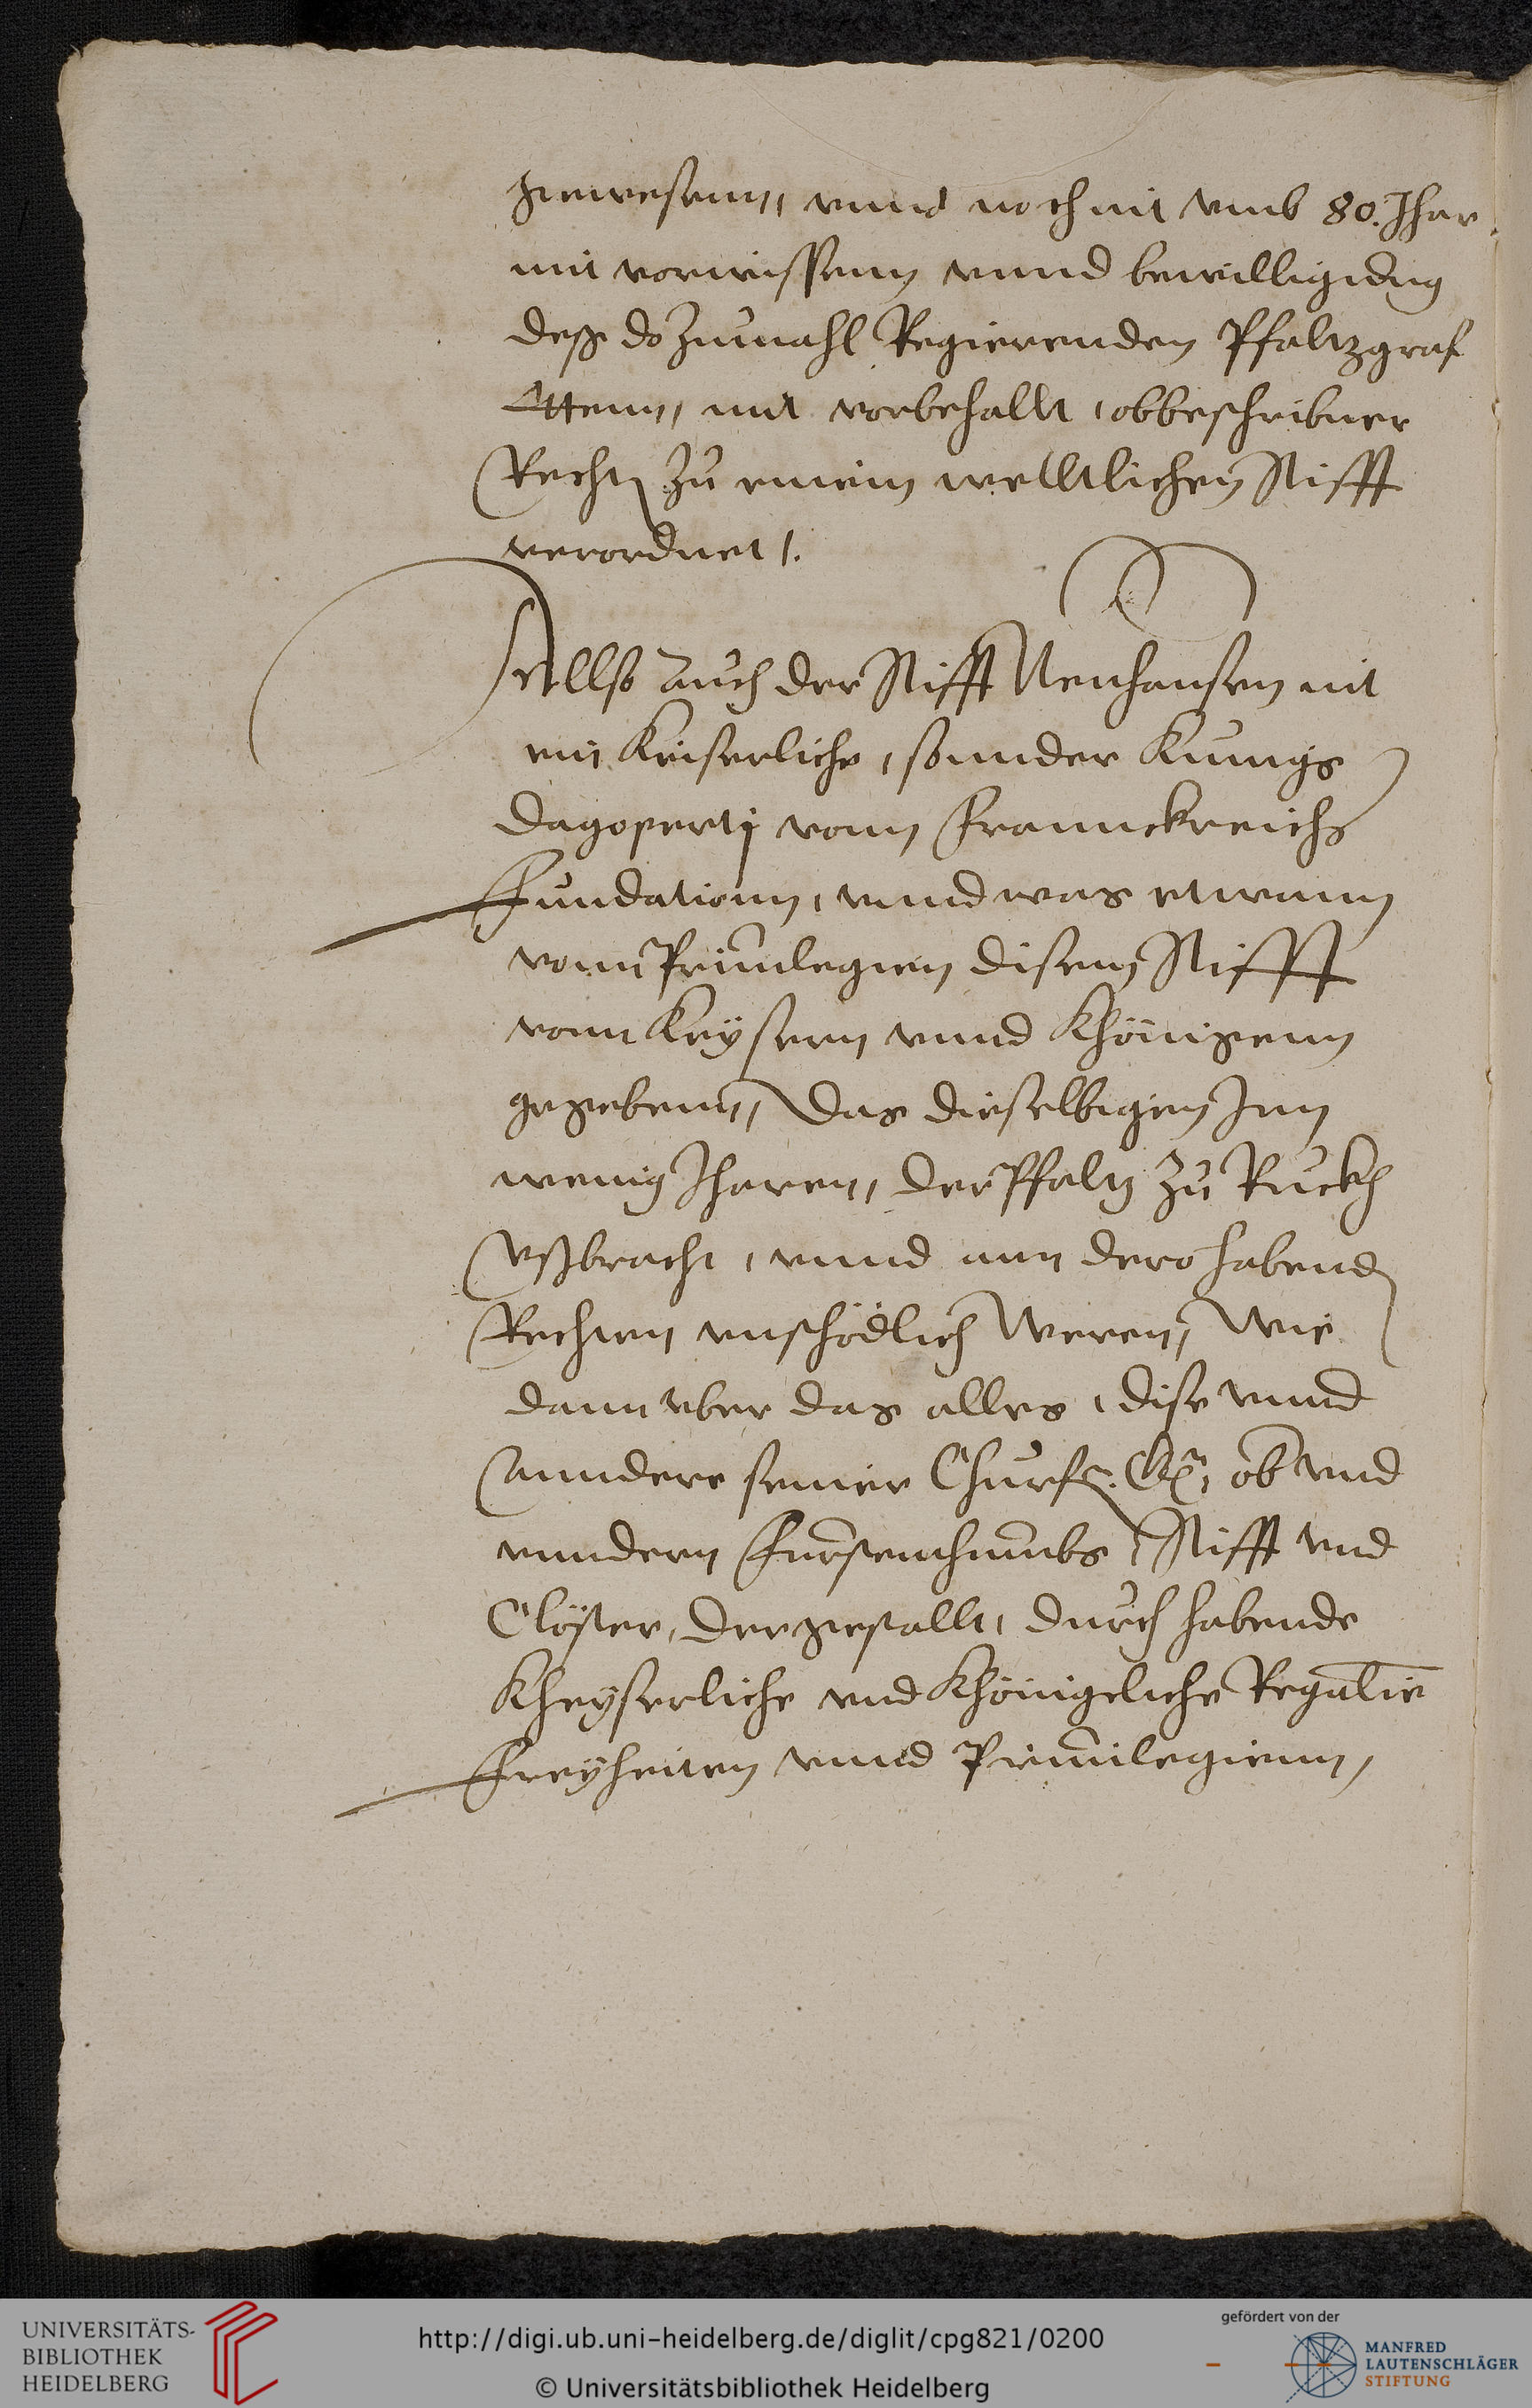 gewesenn, vnnd noch nit vmb 80. Jhar
mit vorwissenn vnnd bewilligung
deß do zumahl Regierenden Pfaltzgraf
Otten, mit vorbehallt, obbeschribner
Recht zu einem welltlichen Stifft
verordnet.
Allso auch der Stifft Neuhausen nit
ein Keiserliche, sonnder Kunigs
Dagoperti vonn Frannckreichs
Fundationn, vnnd was etwann
vonn Priuilegien disem Stifft
vonn Keysern vnnd Khönigenn
gegebenn, das dieselbigen Inn
wenig Jharen, der Pfaltz zu Ruckh
vßbracht, vnnd ann dero habend
Rechten vnschödlich weren, wie
dann vber das alles, dise vnnd
anndere seiner Churf. G. ob vnd
vnndern Furstenthumbs, Stifft vnd
Clöster, dergestallt, durch habende
Kheyserliche vnd Khönigcliche Regalie
Freyheiten vnnd Priuilegienn,
UNIVERSITÄTS-
BIBLIOTHEK
HEIDELBERG
http://digi.ub.uni-heidelberg.de/diglit/cpg821/0200
© Universitätsbibliothek Heidelberg
gefördert von der
MANFRED
LAUTENSCHLÄGER
STIFTUNG